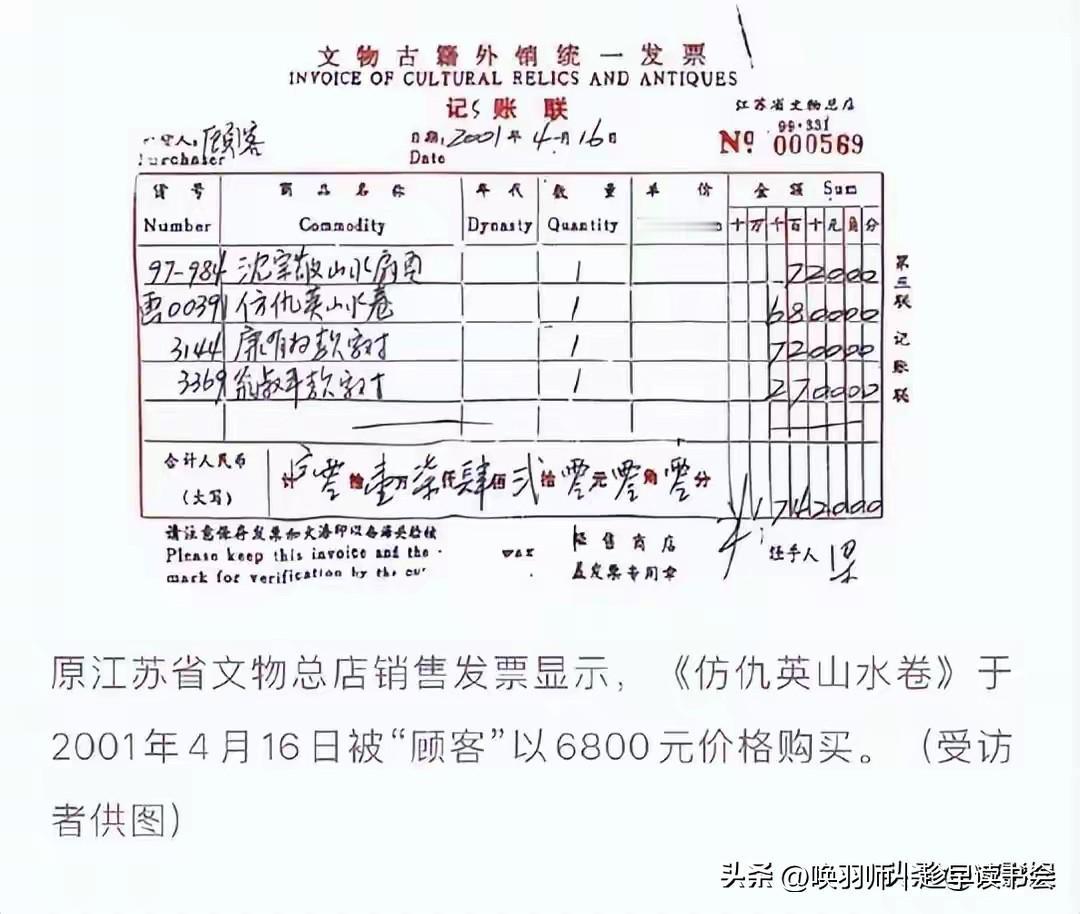 文物古籍外销统一发票
INVOICE OF CULTURAL RELICS AND ANTIQUES
记账联
江苏省文物总店
99·331
顾客
Purchaser
日期：2001年4月16日
Date
Nº 000569
货号 商品名称 年代 数量 单价 金额 Sum
Number Commodity Dynasty Quantity 十万千百十元角分
97-984 沈宗敬山水扇面 1 72000
0039 仿仇英山水卷 1 680000
3144 康有为款字对 1 720000
3369 翁叔平款字对 1 270000
合计人民币
（大写）
零拾壹万柒仟肆佰贰拾零元零角零分 ¥1742000
第三联 记账联
请注意保存发票和火漆印以备海关检核
Please keep this invoice and the
wax
mark for verification by the cus
经售商店
盖发票专用章
经手人 梁
原江苏省文物总店销售发票显示，《仿仇英山水卷》于
2001年4月16日被“顾客”以6800元价格购买。（受访
者供图）
头条 @唤羽师